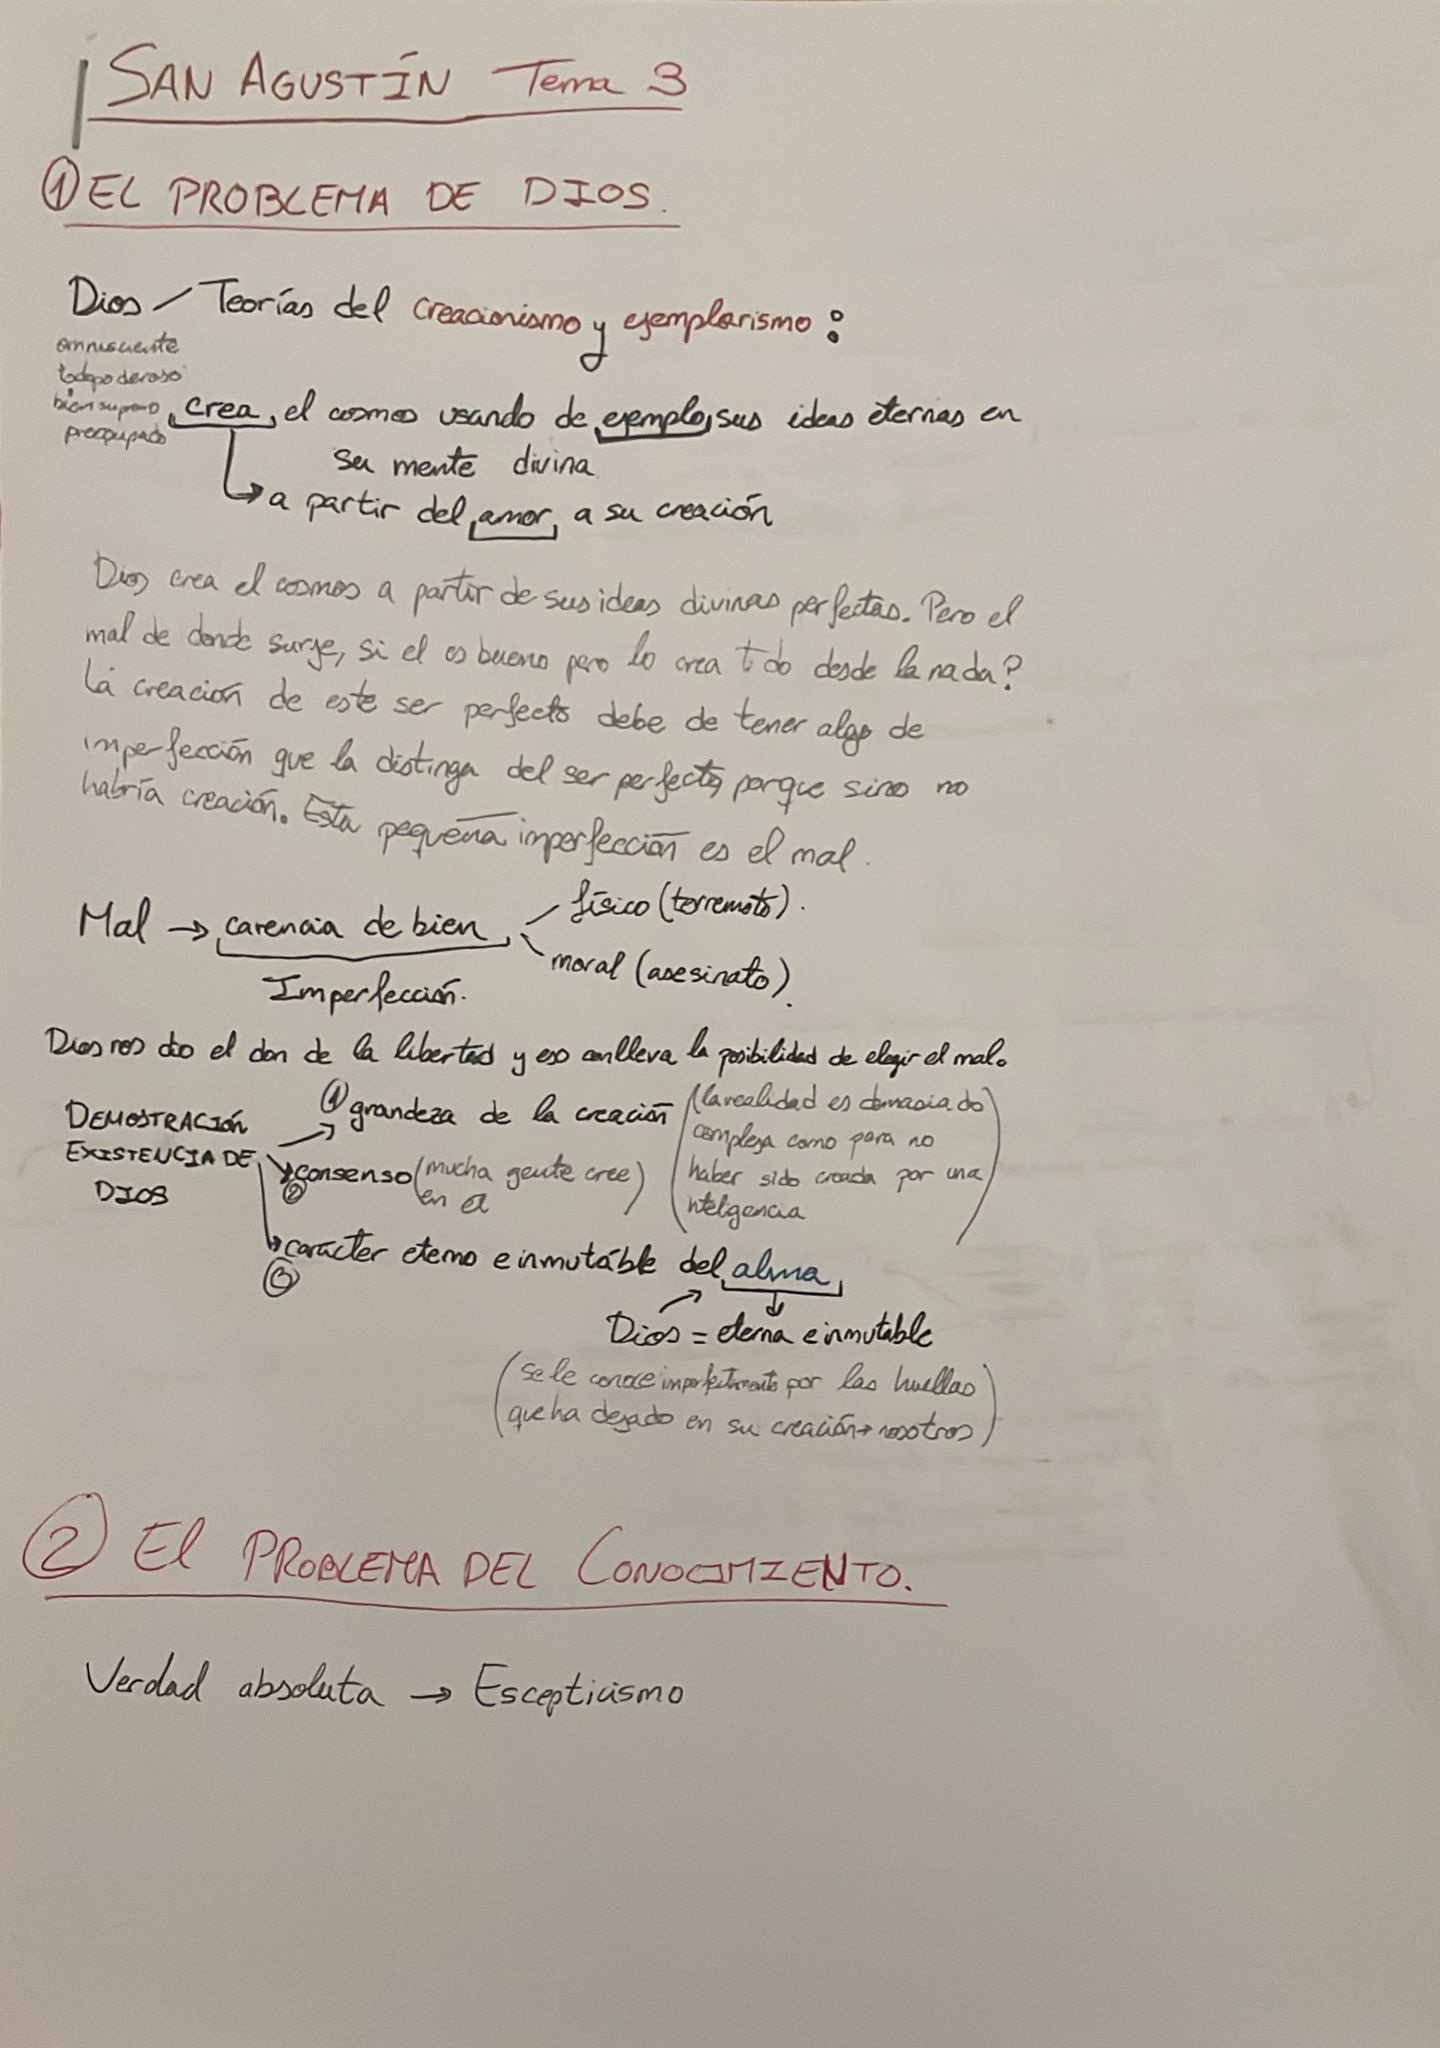 SAN AGUSTÍN Tema 3
① EL PROBLEMA DE DIOS.
Dios / Teorías del creacionismo y ejemplarismo:
omnisciente
todopoderoso
bien supremo
preocupado
crea el cosmos usando de ejemplo sus ideas eternas en
su mente divina
→ a partir del amor a su creación
Dios crea el cosmos a partir de sus ideas divinas perfectas. Pero el
mal de donde surge, si el es bueno pero lo crea todo desde la nada?
La creación de este ser perfecto debe de tener algo de
imperfección que la distinga del ser perfecto porque sino no
habría creación. Esta pequeña imperfección es el mal.
Mal → carencia de bien
físico (terremoto).
moral (asesinato).
Imperfección.
Dios nos dio el don de la libertad y eso conlleva la posibilidad de elegir el mal.
DEMOSTRACIÓN
EXISTENCIA DE
DIOS
① grandeza de la creación
(la realidad es demasiado
compleja como para no
haber sido creada por una
inteligencia)
② consenso (mucha gente cree
en el)
③ carácter eterno e inmutable del alma
Dios = eterna e inmutable
(se le conoce imperfectamente por las huellas
que ha dejado en su creación → nosotros)
② El PROBLEMA DEL CONOCIMIENTO.
Verdad absoluta → Escepticismo